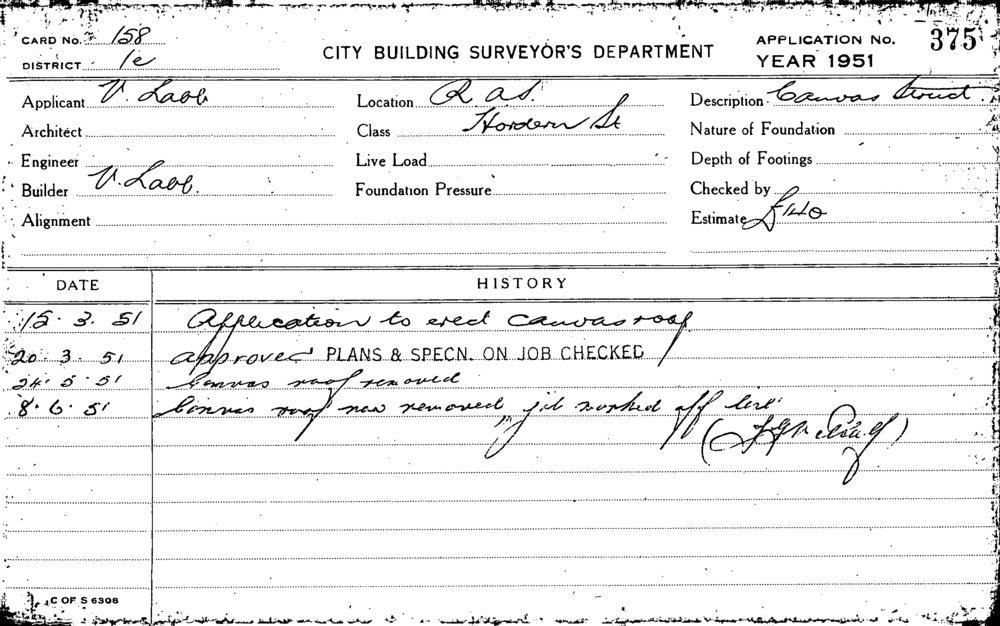 CARD No. 158
DISTRICT 1e
CITY BUILDING SURVEYOR'S DEPARTMENT
APPLICATION No. 375
YEAR 1951
Applicant V. Labb
Architect
Engineer
Builder V. Labb.
Alignment
Location R.A.S.
Class Hordern St
Live Load
Foundation Pressure
Description Canvas Struct.
Nature of Foundation
Depth of Footings
Checked by
Estimate £140
DATE HISTORY
15.3.51 Application to erect canvas roof
20.3.51 approved PLANS & SPECN. ON JOB CHECKED
24.5.51 Canvas roof removed
8.6.51 Canvas roof now removed, job marked off
C OF S 6308